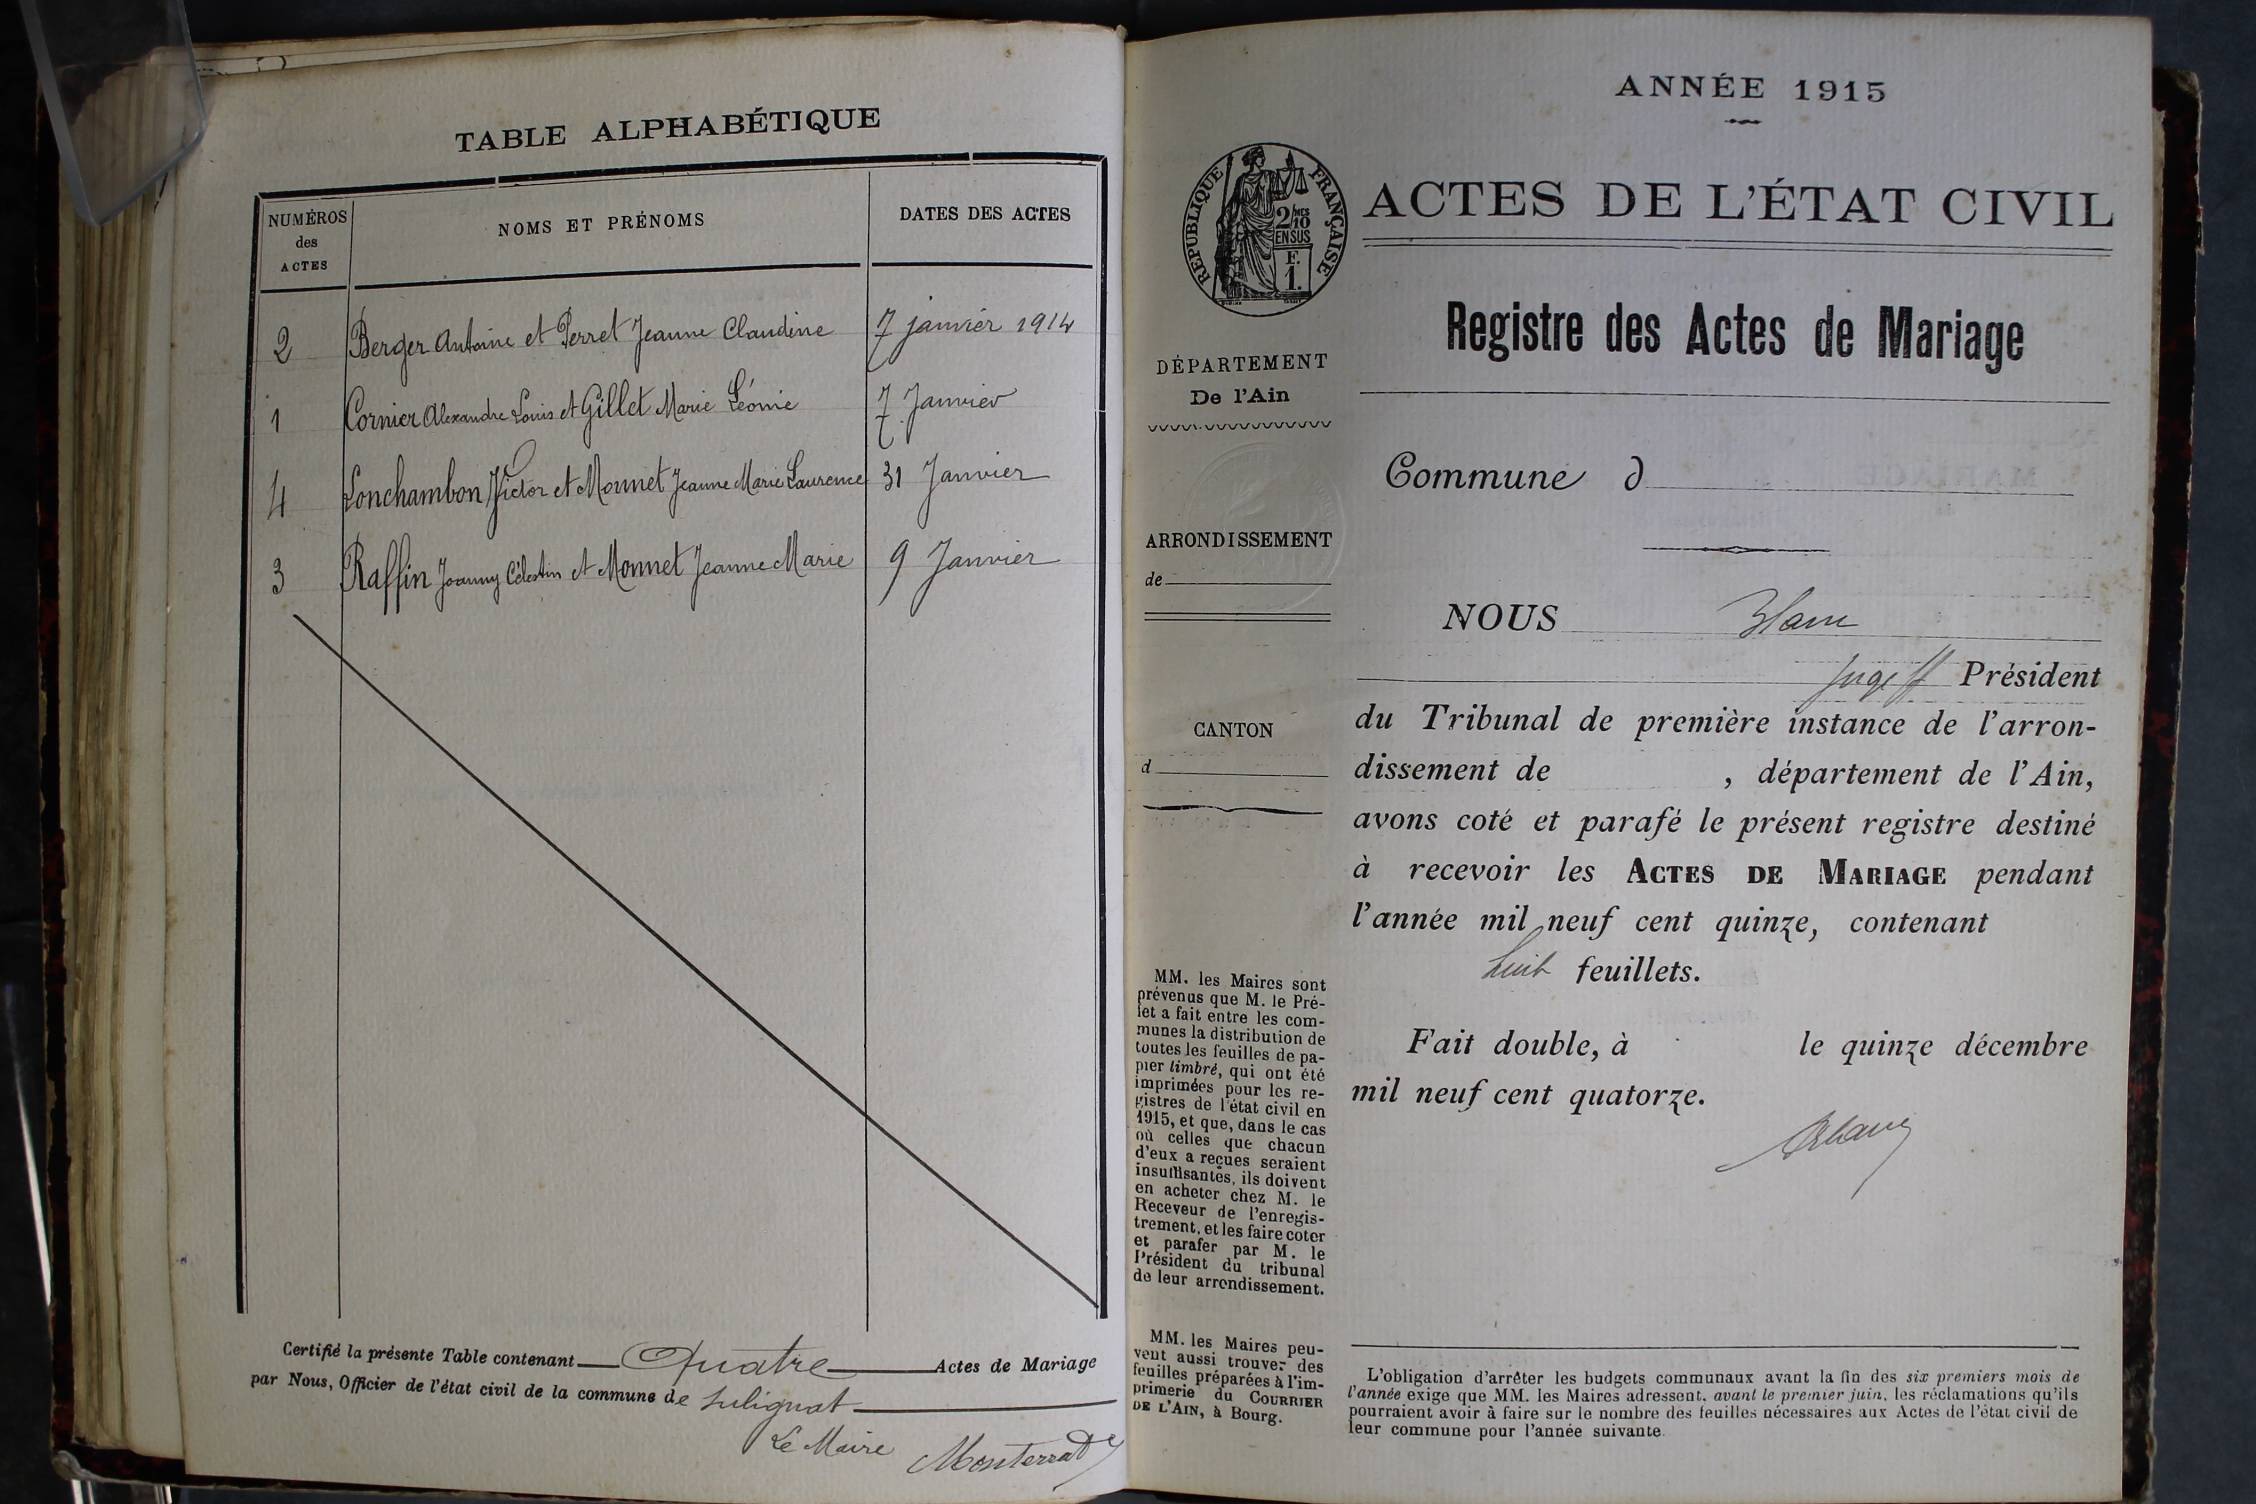 TABLE ALPHABÉTIQUE
NUMÉROS des ACTES
NOMS ET PRÉNOMS
DATES DES ACTES
2 Berger Antoine et Perret Jeanne Claudine 7 janvier 1914
1 Cornier Alexandre Louis et Gillet Marie Léonie 7 Janvier
4 Lonchambon Victor et Monnet Jeanne Marie Laurence 31 Janvier
3 Raffin Joanny Célestin et Monnet Jeanne Marie 9 Janvier
Certifié la présente Table contenant Quatre Actes de Mariage
par Nous, Officier de l'état civil de la commune de Sulignat
Le Maire Monterrad
ANNÉE 1915
RÉPUBLIQUE FRANÇAISE
2/10 MES
EN SUS
F.
1.
ACTES DE L'ÉTAT CIVIL
Registre des Actes de Mariage
DÉPARTEMENT
De l'Ain
Commune d
ARRONDISSEMENT
de
CANTON
d
NOUS Blanc
Juge ff Président
du Tribunal de première instance de l'arron-
dissement de , département de l'Ain,
avons coté et parafé le présent registre destiné
à recevoir les ACTES DE MARIAGE pendant
l'année mil neuf cent quinze, contenant
huit feuillets.
Fait double, à le quinze décembre
mil neuf cent quatorze.
MM. les Maires sont
prévenus que M. le Pré-
fet a fait entre les com-
munes la distribution de
toutes les feuilles de pa-
pier timbré, qui ont été
imprimées pour les re-
gistres de l'état civil en
1915, et que, dans le cas
où celles que chacun
d'eux a reçues seraient
insuffisantes, ils doivent
en acheter chez M. le
Receveur de l'enregis-
trement, et les faire coter
et parafer par M. le
Président du tribunal
de leur arrondissement.
MM. les Maires peu-
vent aussi trouver des
feuilles préparées à l'im-
primerie du COURRIER
DE L'AIN, à Bourg.
L'obligation d'arrêter les budgets communaux avant la fin des six premiers mois de
l'année exige que MM. les Maires adressent, avant le premier juin, les réclamations qu'ils
pourraient avoir à faire sur le nombre des feuilles nécessaires aux Actes de l'état civil de
leur commune pour l'année suivante.